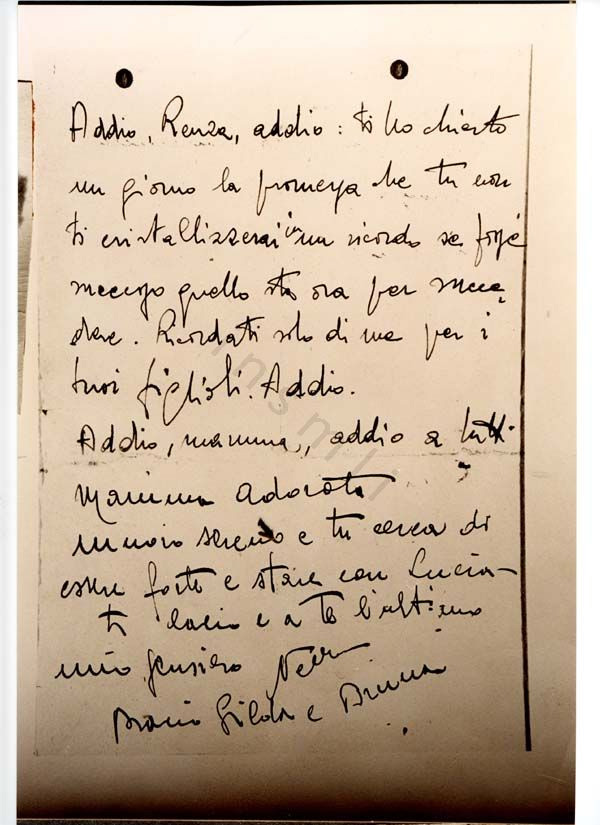 Addio, Renza, addio: ti ho chiesto
un giorno la promessa che tu non
ti cristallizzerai in un ricordo se fosse
successo quello sta ora per succe-
dere. Ricordati solo di me per i
tuoi figlioli. Addio.
Addio, mamma, addio a tutti.
Mamma adorata
muoio sereno e tu cerca di
essere forte e stare con Lucia
ti bacio e a te l'ultimo
mio pensiero
Bacio Gilda e
insmli